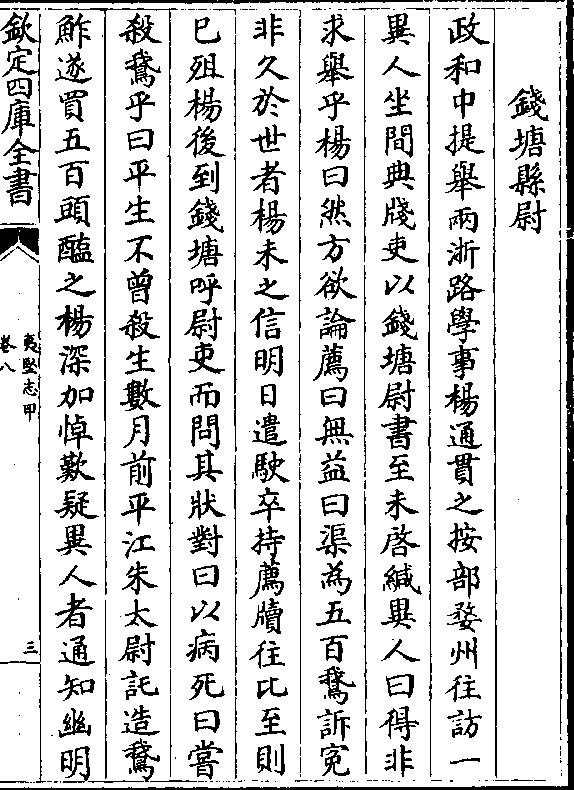 錢塘縣尉
政和中提舉兩浙路學事楊通貫之按部婺州往訪一
異人坐間典牋吏以錢塘尉書至未啓緘異人曰得非
求舉乎楊曰然方欲論薦曰無益曰渠為五百鵞訴寃
非久於世者楊未之信明日遣駛卒持薦牘往比至則
已殂楊後到錢塘呼尉吏而問其狀對曰以病死曰嘗
殺鵞乎曰平生不曾殺生數月前平江朱太尉託造鵞
鮓遂買五百頭醢之楊深加悼歎疑異人者通知幽明
欽定四庫全書
夷堅志甲
卷八
三